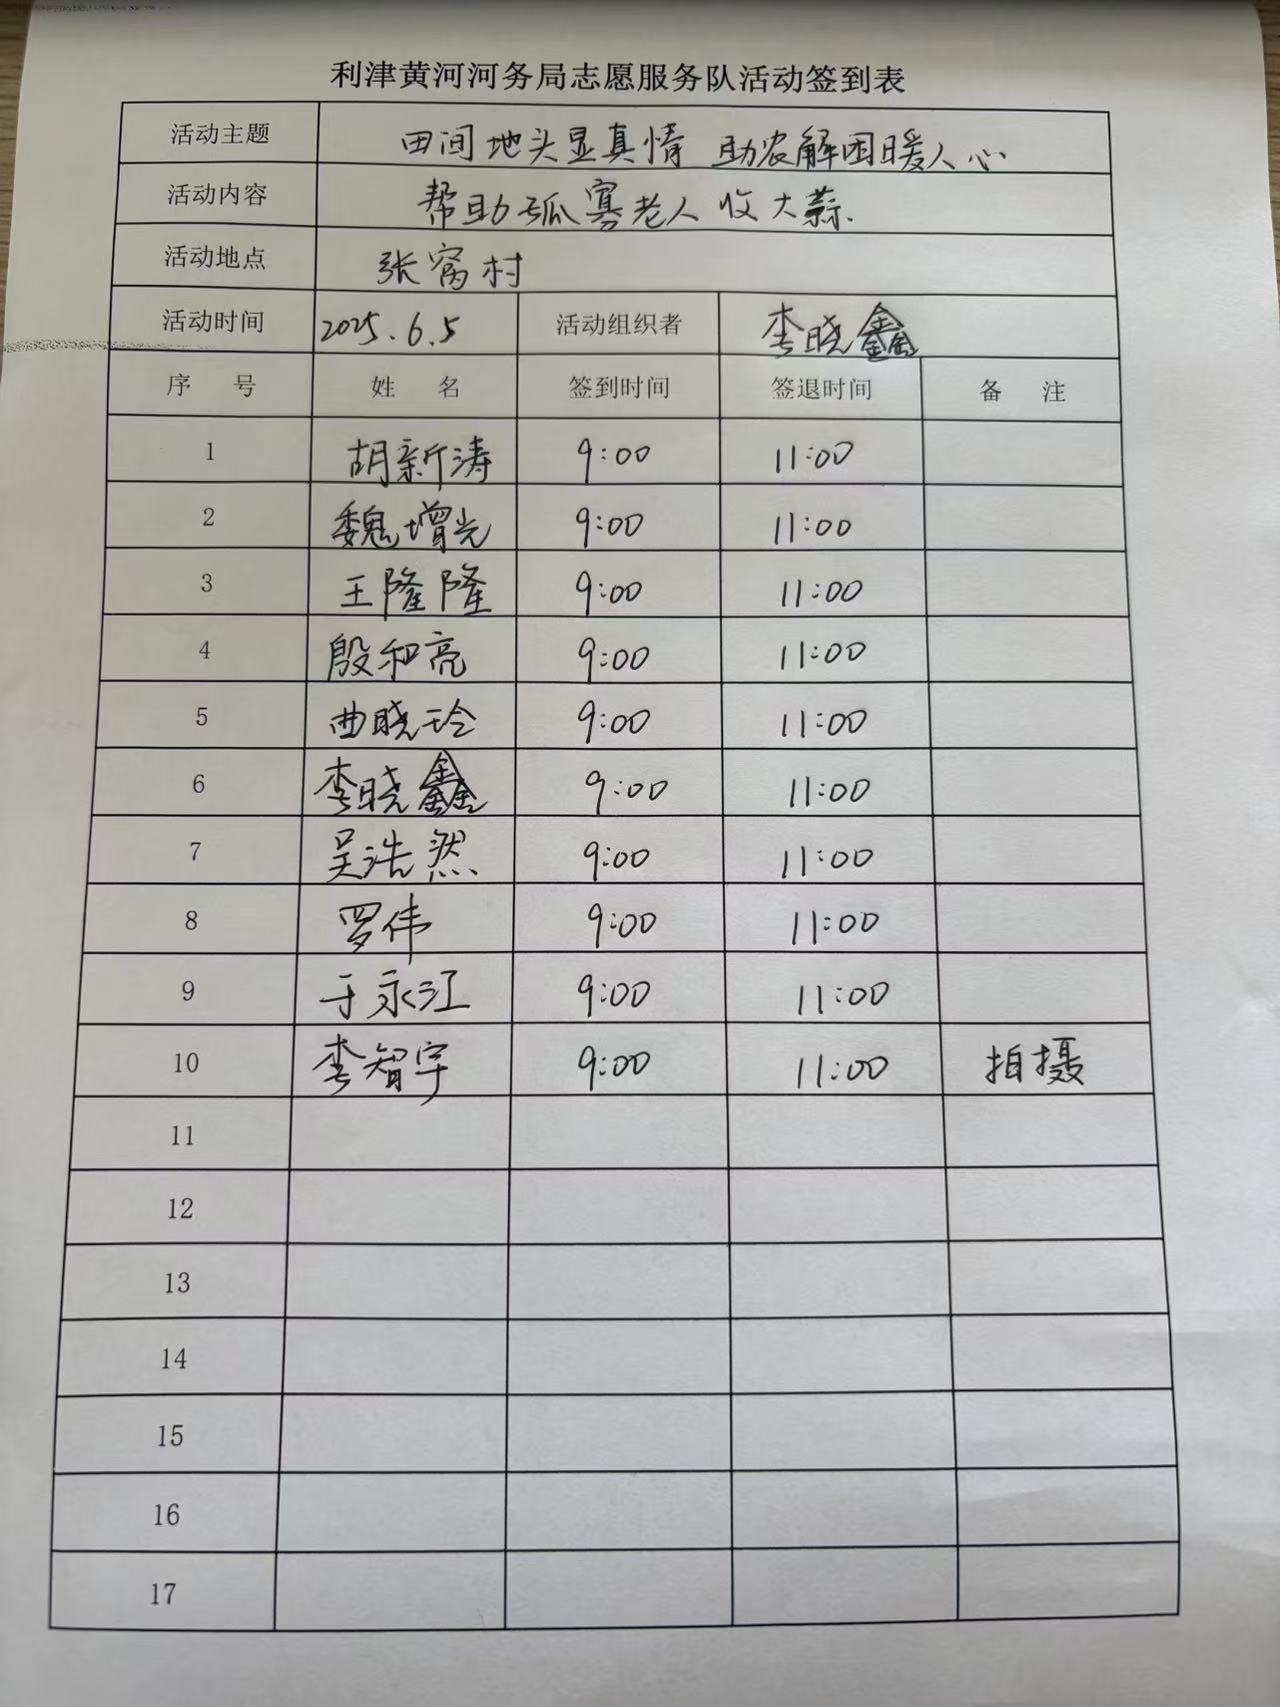 利津黄河河务局志愿服务队活动签到表
活动主题 田间地头显真情 助农解困暖人心
活动内容 帮助孤寡老人收大蒜.
活动地点 张窝村
活动时间 2025.6.5 活动组织者 李晓鑫
序 号 姓 名 签到时间 签退时间 备 注
1 胡新涛 9:00 11:00
2 魏增光 9:00 11:00
3 王隆隆 9:00 11:00
4 殷和亮 9:00 11:00
5 曲晓玲 9:00 11:00
6 李晓鑫 9:00 11:00
7 吴浩然 9:00 11:00
8 罗伟 9:00 11:00
9 于永江 9:00 11:00
10 李智宇 9:00 11:00 拍摄
11
12
13
14
15
16
17